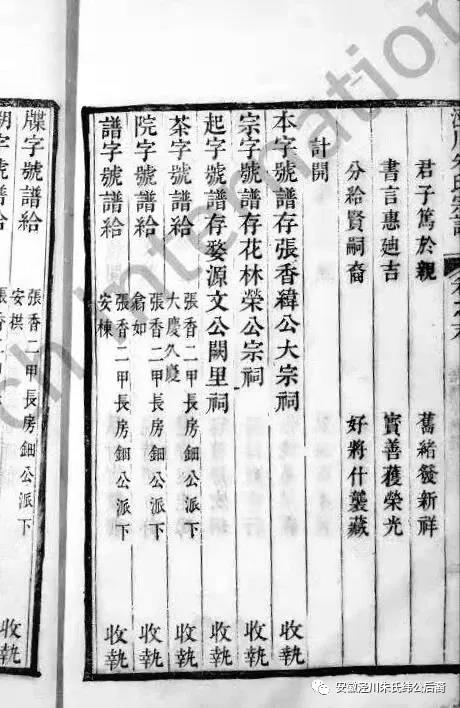 涇川朱氏宗譜 卷之末
君子篤於親 舊緒發新祥
書言惠迪吉 實善獲榮光
分給賢嗣裔 好將什襲藏
計開
本字號譜存張香緯公大宗祠 收執
宗字號譜存花林榮公宗祠 收執
起字號譜存婺源文公闕里祠 收執
茶字號譜給 張香二甲長房鈿公派下大慶久慶 收執
院字號譜給 張香二甲長房鈿公派下翕如 收執
譜字號譜給 張香二甲長房鈿公派下安棟 收執
牒字號譜給 張香二甲長房鈿公派下安拱 收執
字號譜給 張香二甲
rch International
安徽泾川朱氏纬公后裔